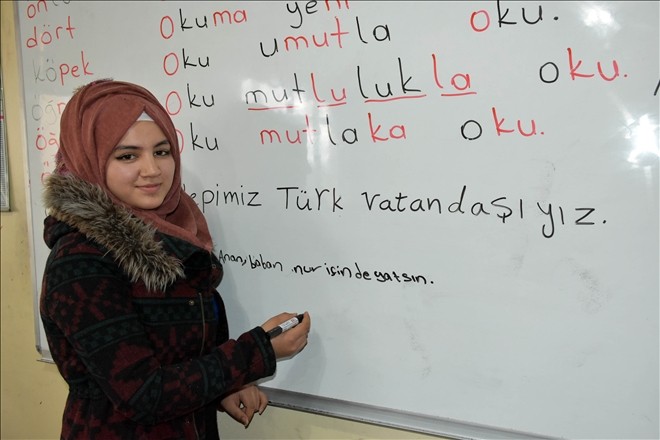 dört
Okuma yeni
umutla oku.
köpek
Oku
Oku mutlulukla oku.
Oku mutlaka oku.
epimiz Türk vatandaşıyız.
Anan, baban nur içinde yatsın.